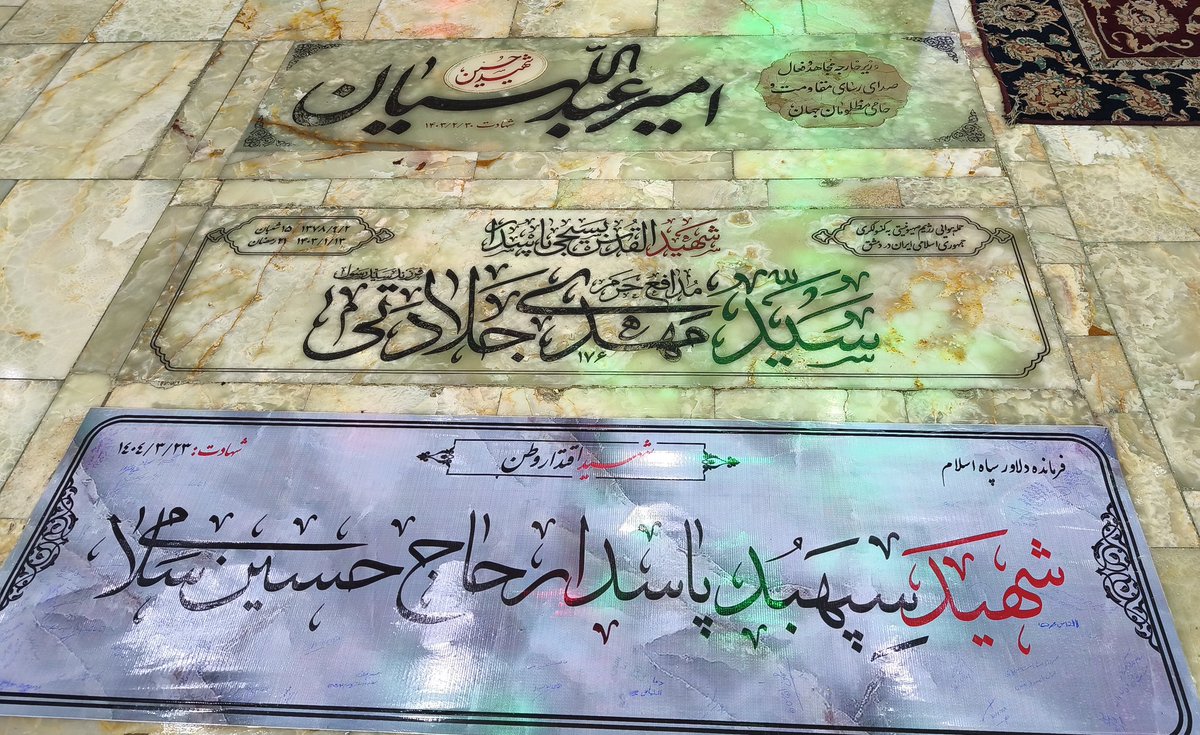 شهید حسین
امیرعبداللهیان
شهادت ۱۴۰۳/۲/۳۰
وزیر خارجه مجاهد و فعال
صدای رسای مقاومت و
حامی مظلومان جهان
حمله هوایی رژیم صهیونیستی به کنسولگری
جمهوری اسلامی ایران در دمشق
شهید القدس بسیجی پاسدار
۱۳۷۸/۹/۲ ۱۵ شعبان
۱۴۰۳/۱/۱۳ ۲۱ رمضان
مدافع حرم
سید مهدی جلادتی
۱۷۶
فرمانده دلاور سپاه اسلام
شهید اقتدار وطن
شهادت: ۱۴۰۴/۳/۲۳
شهید سپهبد پاسدار حاج حسین سلامی